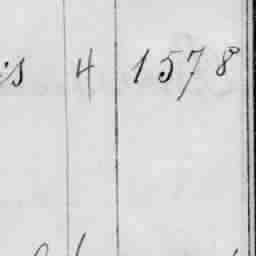 is 4 1578